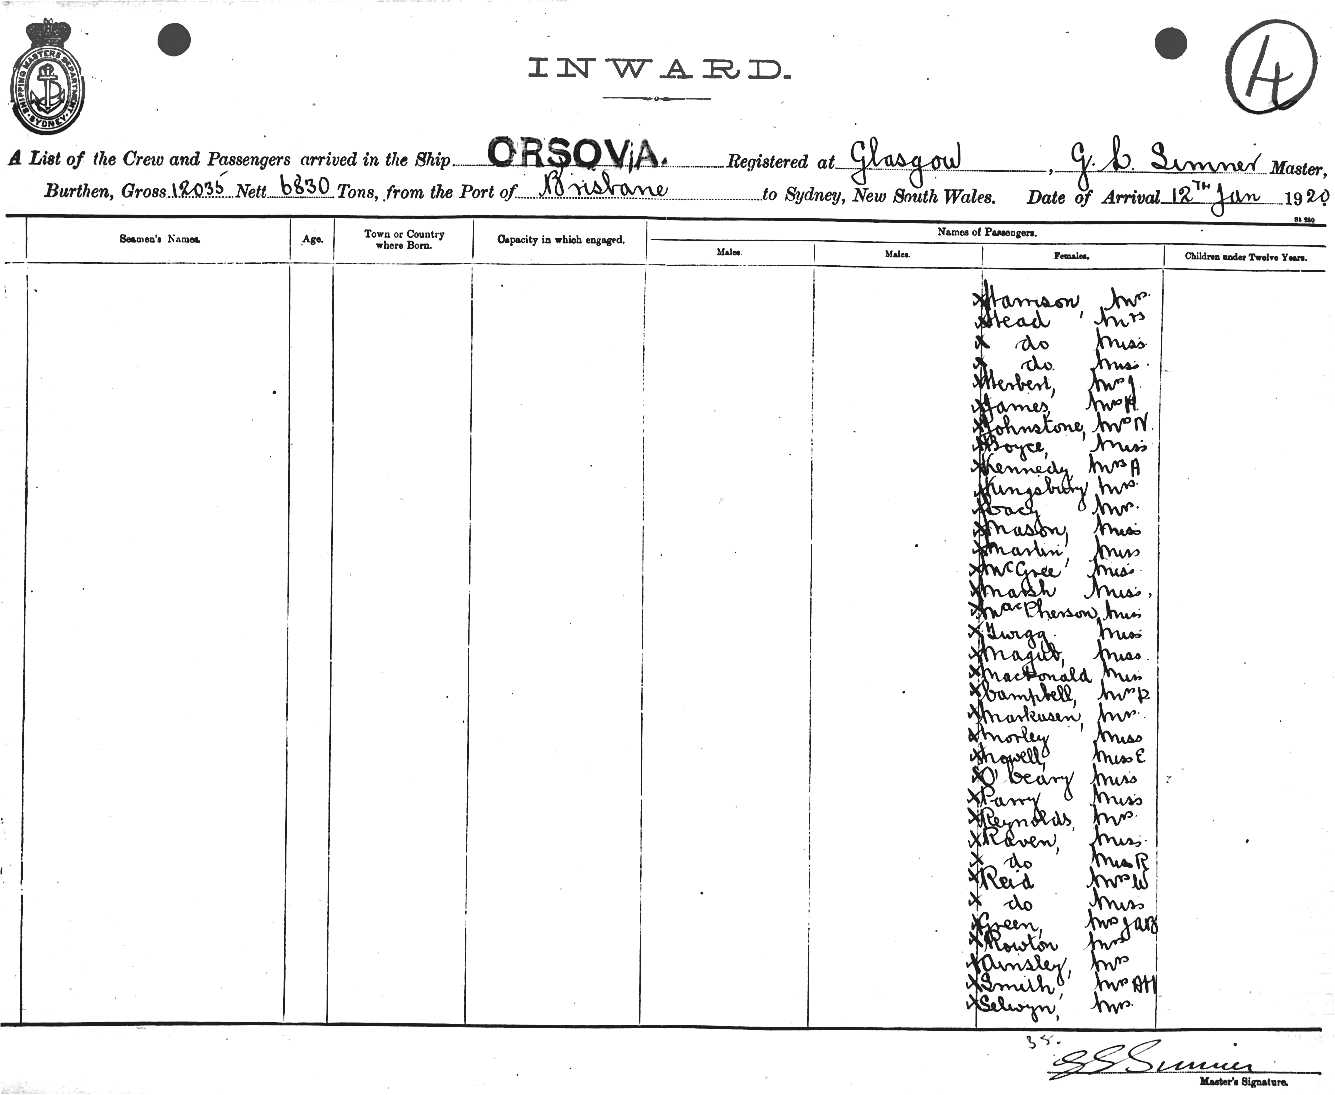 SHIPPING MASTERS DEPARTMENT SYDNEY
INWARD.
4
A List of the Crew and Passengers arrived in the Ship ORSOVA. Registered at Glasgow, G. L. Sumner Master,
Burthen, Gross 12035 Nett 6830 Tons, from the Port of Brisbane to Sydney, New South Wales. Date of Arrival 12TH Jan 1920
Seamen's Names. Age. Town or Country where Born. Capacity in which engaged. Names of Passengers.
Males. Males. Females. Children under Twelve Years.
x Harrison, Mrs.
x Head Mrs
x do Miss
x do. Miss.
x Herbert, Mrs J
x James, Mrs H.
x Johnstone, Mrs N.
x Boyce, Miss
x Kennedy, Mrs A
x Kingsbury Mrs.
x Lacy Mrs.
x Mason, Miss
x Martin, Miss
x McGree Miss.
x Marsh Miss.
x MacPherson, Miss
x Miss
x Miss.
x MacDonald Miss
x Campbell, Mrs R
x Markusen, Mrs.
x Morley Miss
x Nowell, Miss E
x O'Leary Miss
x Parry Miss
x Reynolds, Mrs.
x Raven, Miss.
x do Miss R
x Reid Mrs W
x do Miss
x Green, Mrs
x Rowton Mrs
x Ainsley, Mrs
x Smith, Mrs AH
x Selwyn, Mrs.
35.
Sumner
Master's Signature.